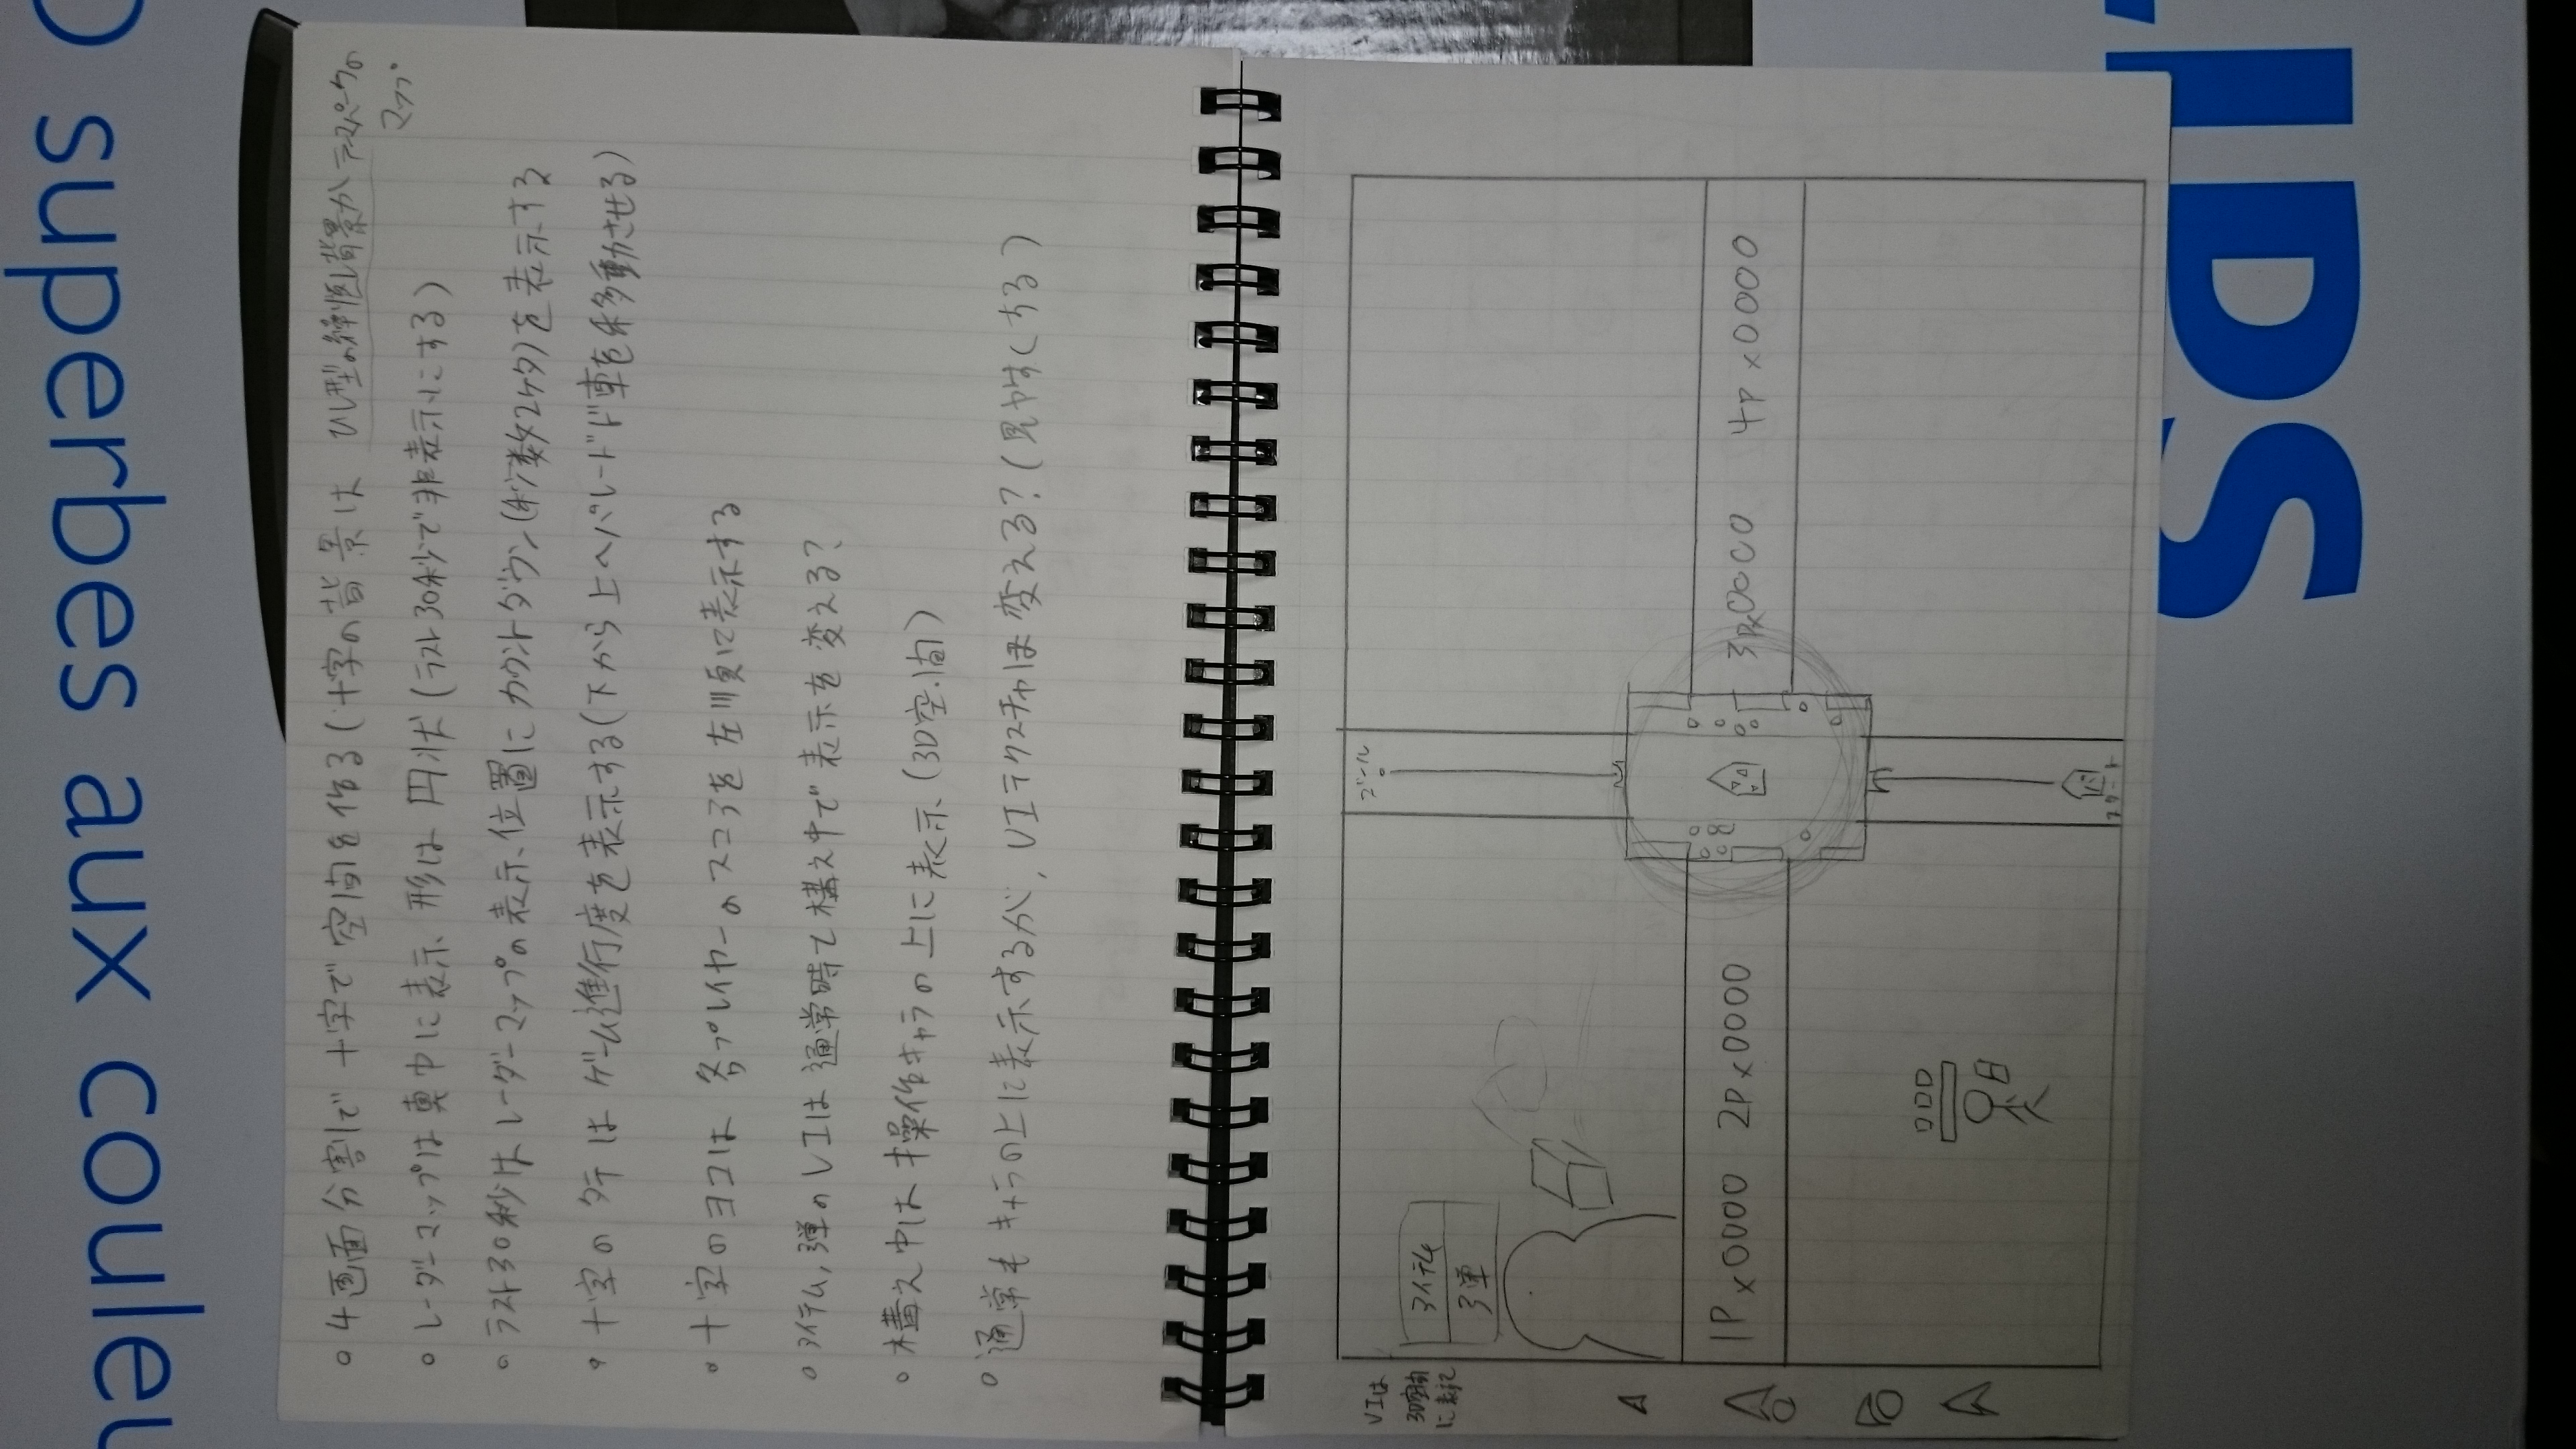 superbes aux couleu
○ 4画面分割で 十字で 空間を作る(十字の背景は ひし型の繰返し背景か テーマパークの
マップ
○ レーダーマップは真中に表示、形は 円状(ラスト30秒で非表示にする)
○ ラスト30秒は レーダーマップの表示位置に カウントダウン(秒数2ケタ)を表示する
○ 十字の タテは ゲーム進行度を表示する(下から上へパレード車を移動させる)
○ 十字のヨコは 各プレイヤーのスコアを 左順に表示する
○ アイテム,弾のUIは 通常時と構え中で 表示を 変える?
○ 構え中は 操作キャラの上に表示(3D空間)
○ 通常も キャラの上に表示するが, UIテクスチャは 変える?(見やすくする)
UIは
3D空間
に表記
ゴール
アイテム
弾
1P×0000 2P×0000 3P×0000 4P×0000
スタート